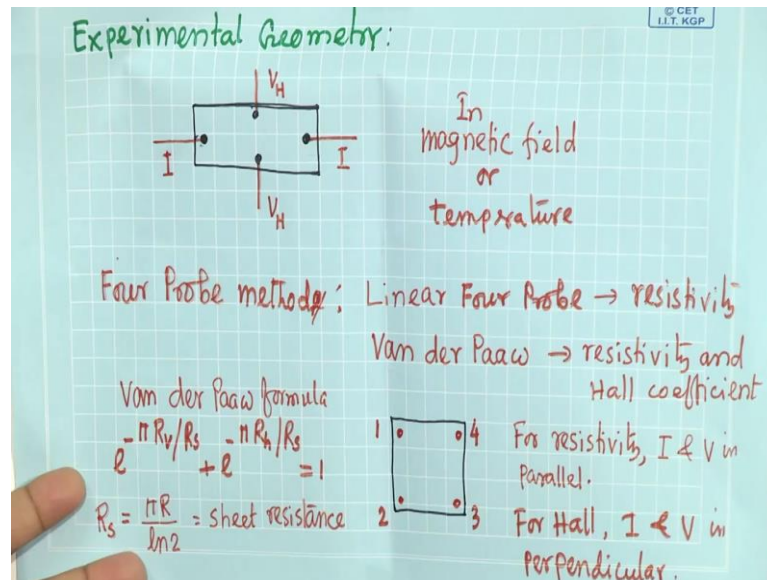 © CET
I.I.T. KGP
Experimental Geometry:
V_H
I
I
V_H
In
magnetic field
or
temprature
Four Probe method: Linear Four Probe → resistivity
Van der Paaw → resistivity and
Hall coefficient
Van der Paaw formula
e^{-πR_v/R_s} + e^{-πR_h/R_s} = 1
R_s = πR/ln2 = sheet resistance
1
4
2
3
For resistivity, I & V in
Parallel.
For Hall, I & V in
perpendicular.